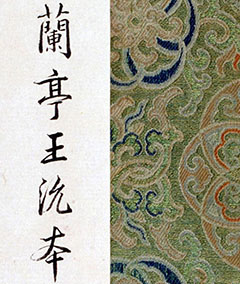 蘭亭王沇本